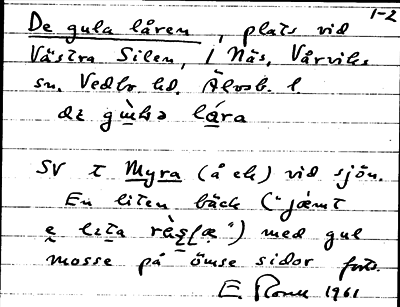 1-2
De gula låren, plats vid
Västra Silen, i Näs, Vårviks
sn. Vedbo hd. Älvsb. l.
lára
SV t Myra (å ek) vid sjön.
En liten bäck (" jæmt
med gul
mosse på ömse sidor forts.
E. 1961